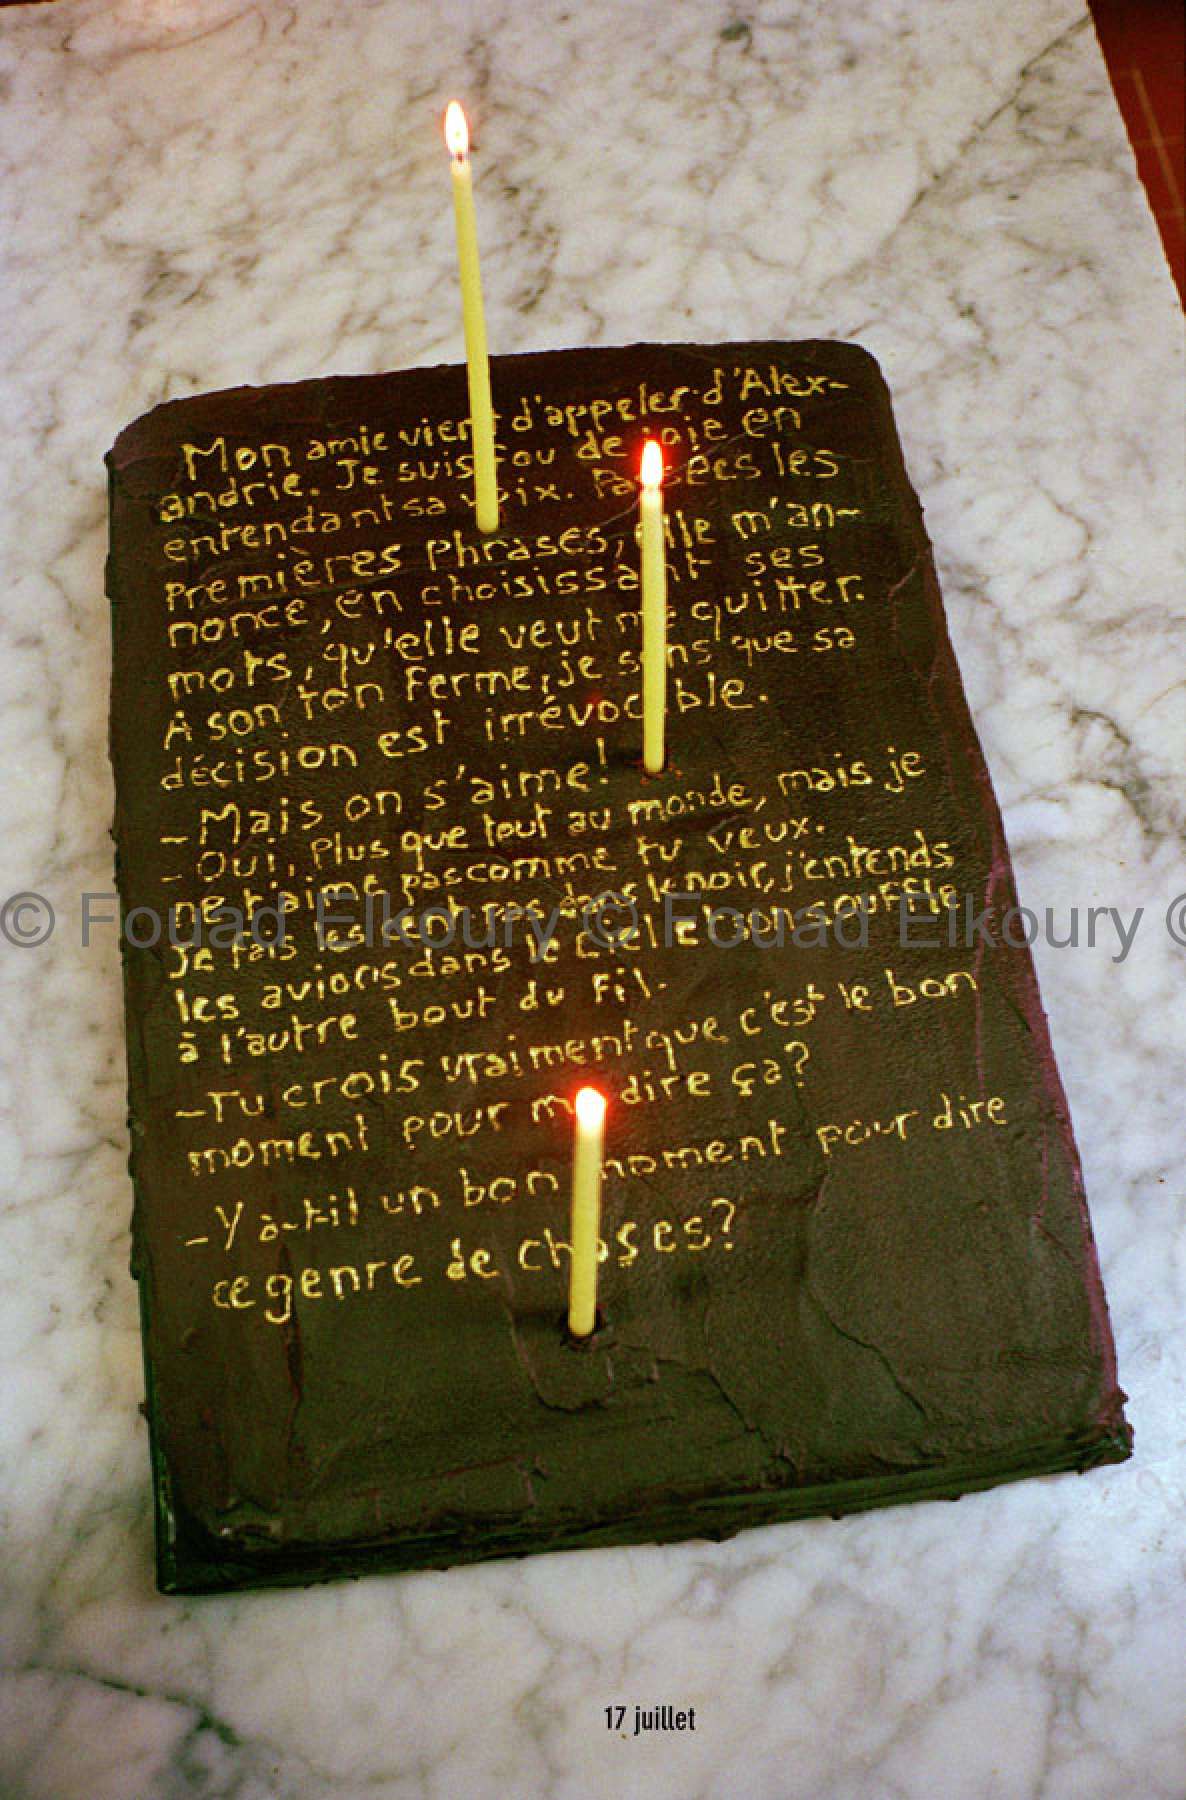 Mon amie vient d'appeler d'Alex-
andrie. Je suis fou de joie en
entendant sa voix. Passées les
premières phrases, elle m'an-
nonce, en choisissant ses
mots, qu'elle veut me quitter.
À son ton ferme, je sens que sa
décision est irrévocable.
- Mais on s'aime!
- Oui, plus que tout au monde, mais je
ne t'aime pas comme tu veux.
Je fais les cent pas dans le noir, j'entends
les avions dans le ciel et son souffle
à l'autre bout du fil.
- Tu crois vraiment que c'est le bon
moment pour me dire ça?
- Y a-t-il un bon moment pour dire
ce genre de choses?
© Fouad Elkoury © Fouad Elkoury ©
17 juillet